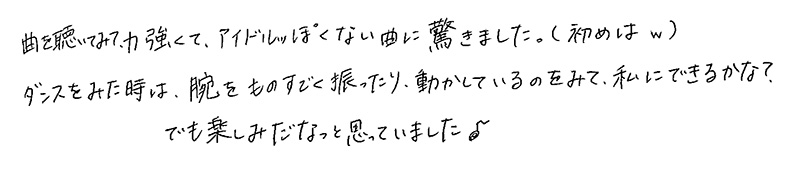 曲を聴いてみて、力強くて、アイドルッぽくない曲に驚きました。(初めはw)
ダンスをみた時は、腕をものすごく振ったり、動かしているのをみて、私にできるかな?
でも楽しみだなっと思っていました♪